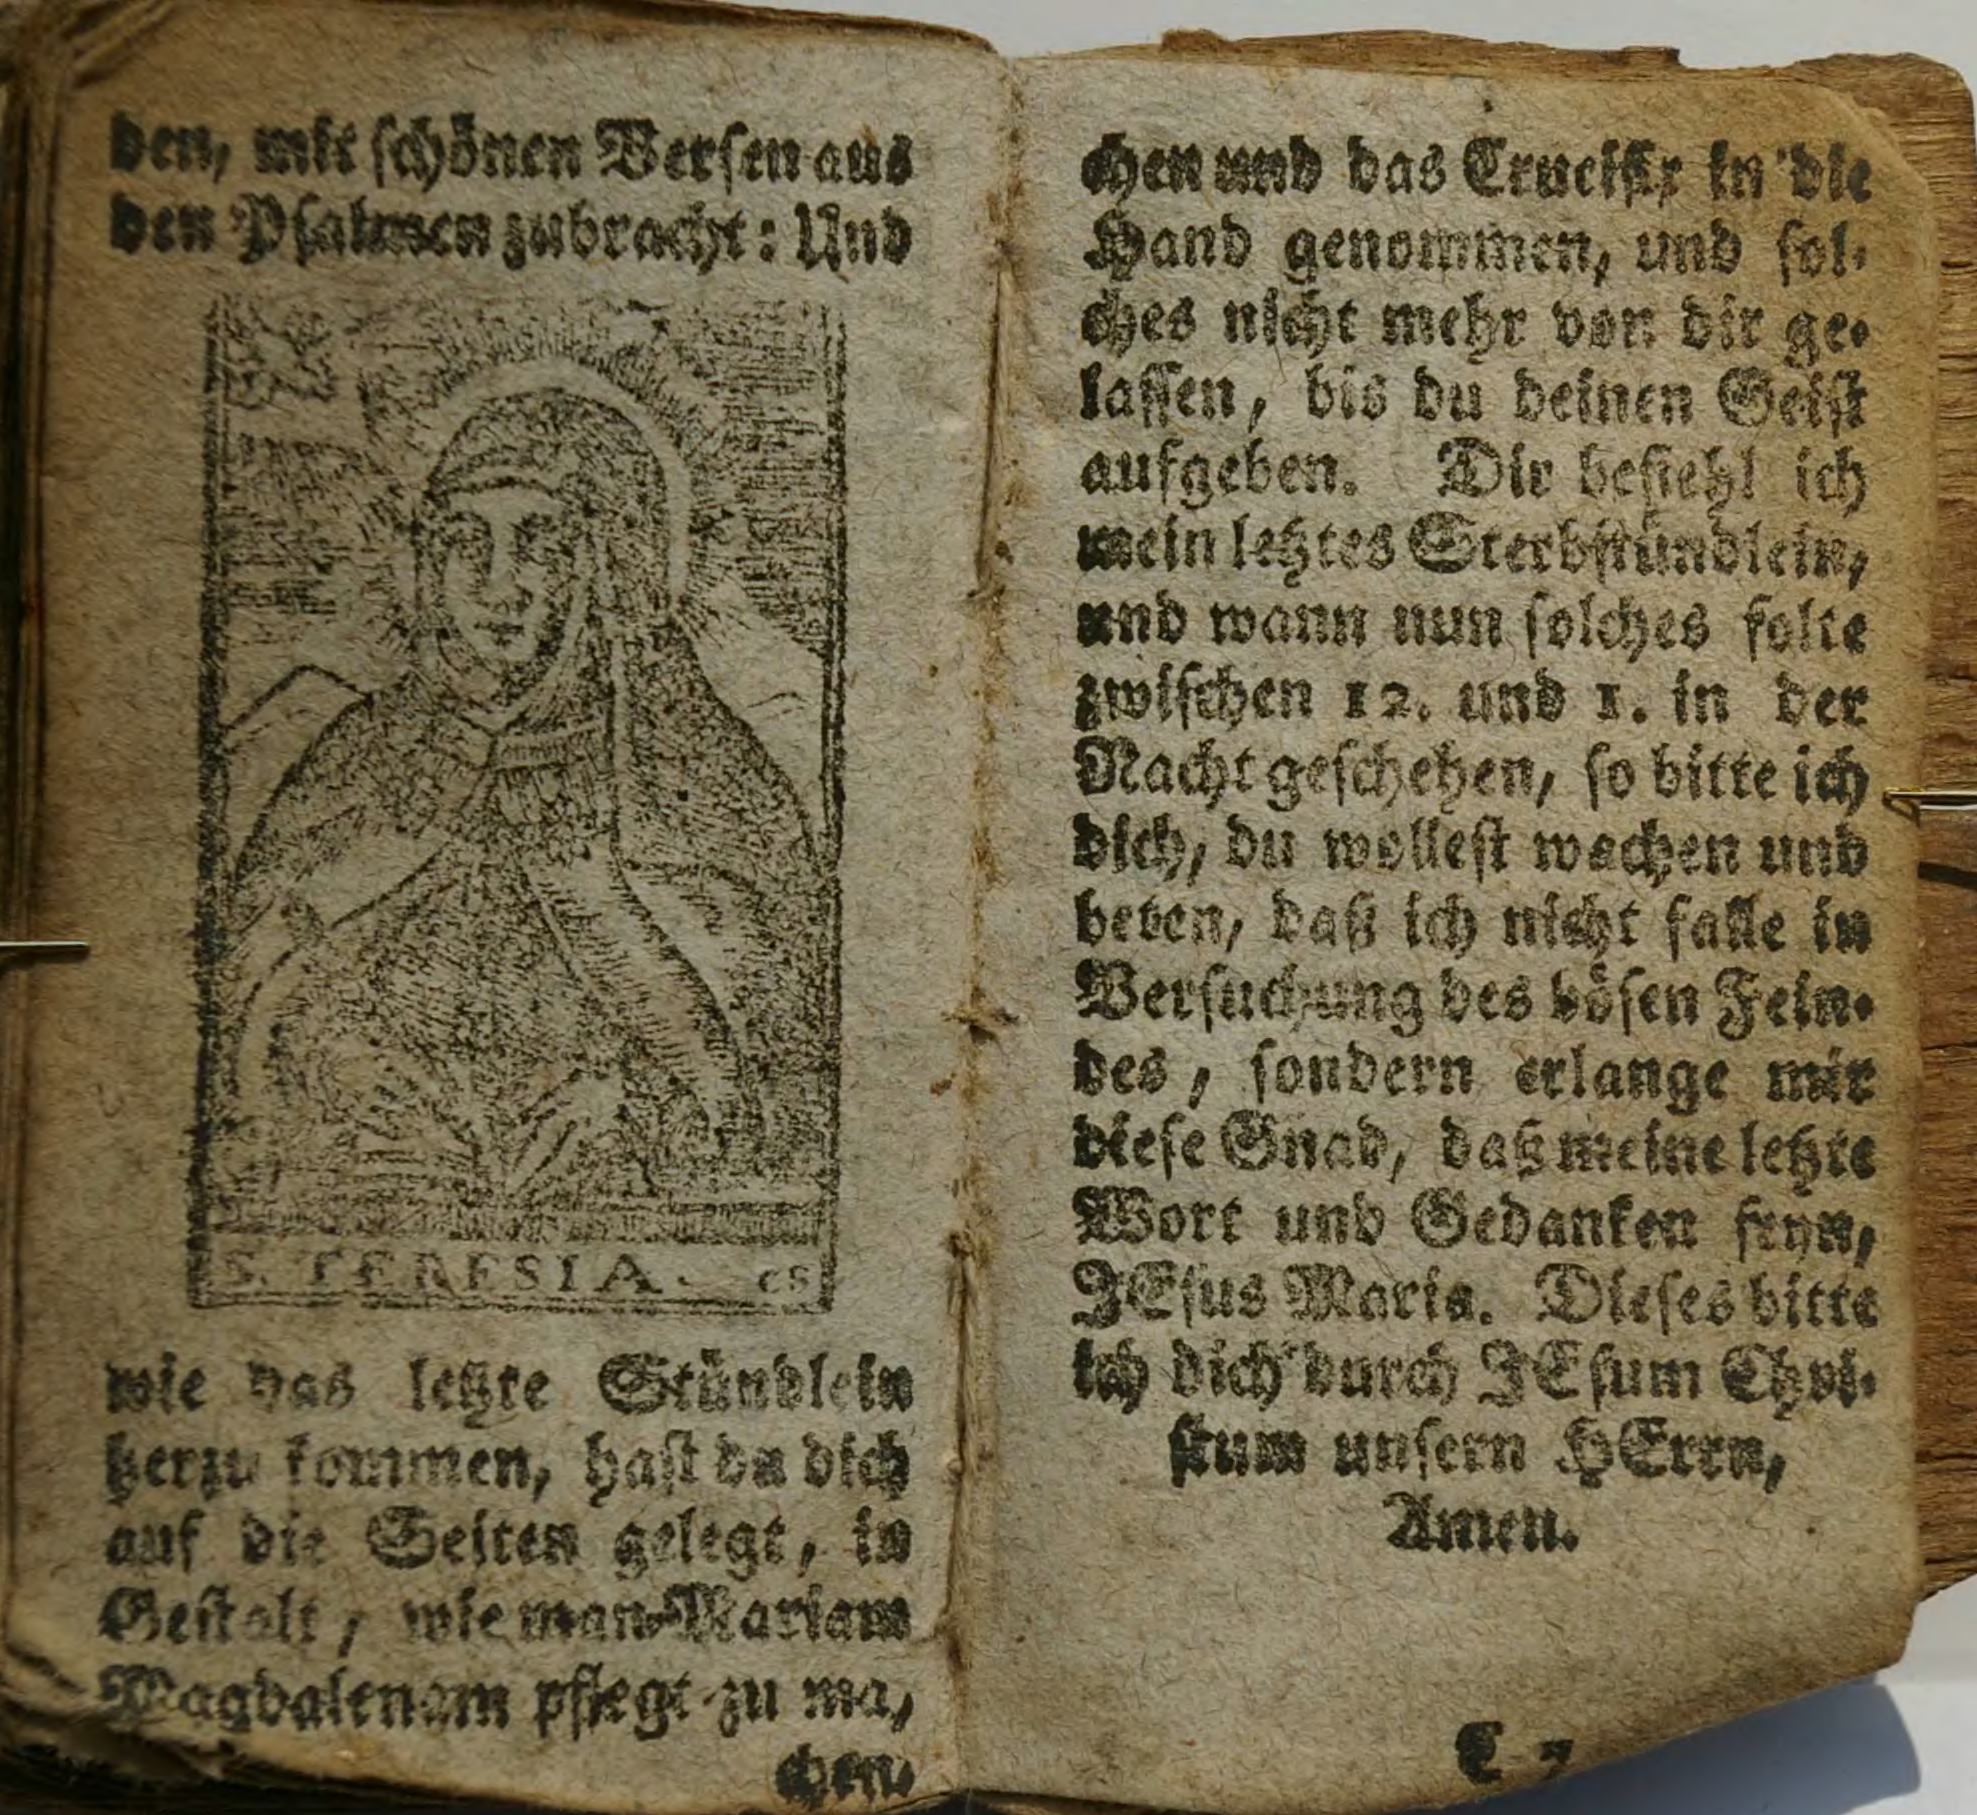 den, mit schönen Versen aus
den Psalmen zubracht: Und
S. TERESIA. CS
wie das letzte Stündlein
herzu kommen, hast du dich
auf die Seiten gelegt, in
Gestalt, wie man Mariam
Magdalenam pflegt zu ma,
chen.
chen und das Crucifix in die
Hand genommen, und sol-
ches nicht mehr von dir ge-
lassen, bis du deinen Geist
aufgeben. Dir befiehl ich
mein letztes Sterbstündlein,
und wann nun solches solte
zwischen 12. und 1. in der
Nacht geschehen, so bitte ich
dich, du wollest wachen und
beten, daß ich nicht falle in
Versuchung des bösen Fein-
des, sondern erlange mir
diese Gnad, daß meine letzte
Wort und Gedanken seyn,
JEsus Maria. Dieses bitte
ich dich durch JEsum Chri-
stum unsern HErrn,
Amen.